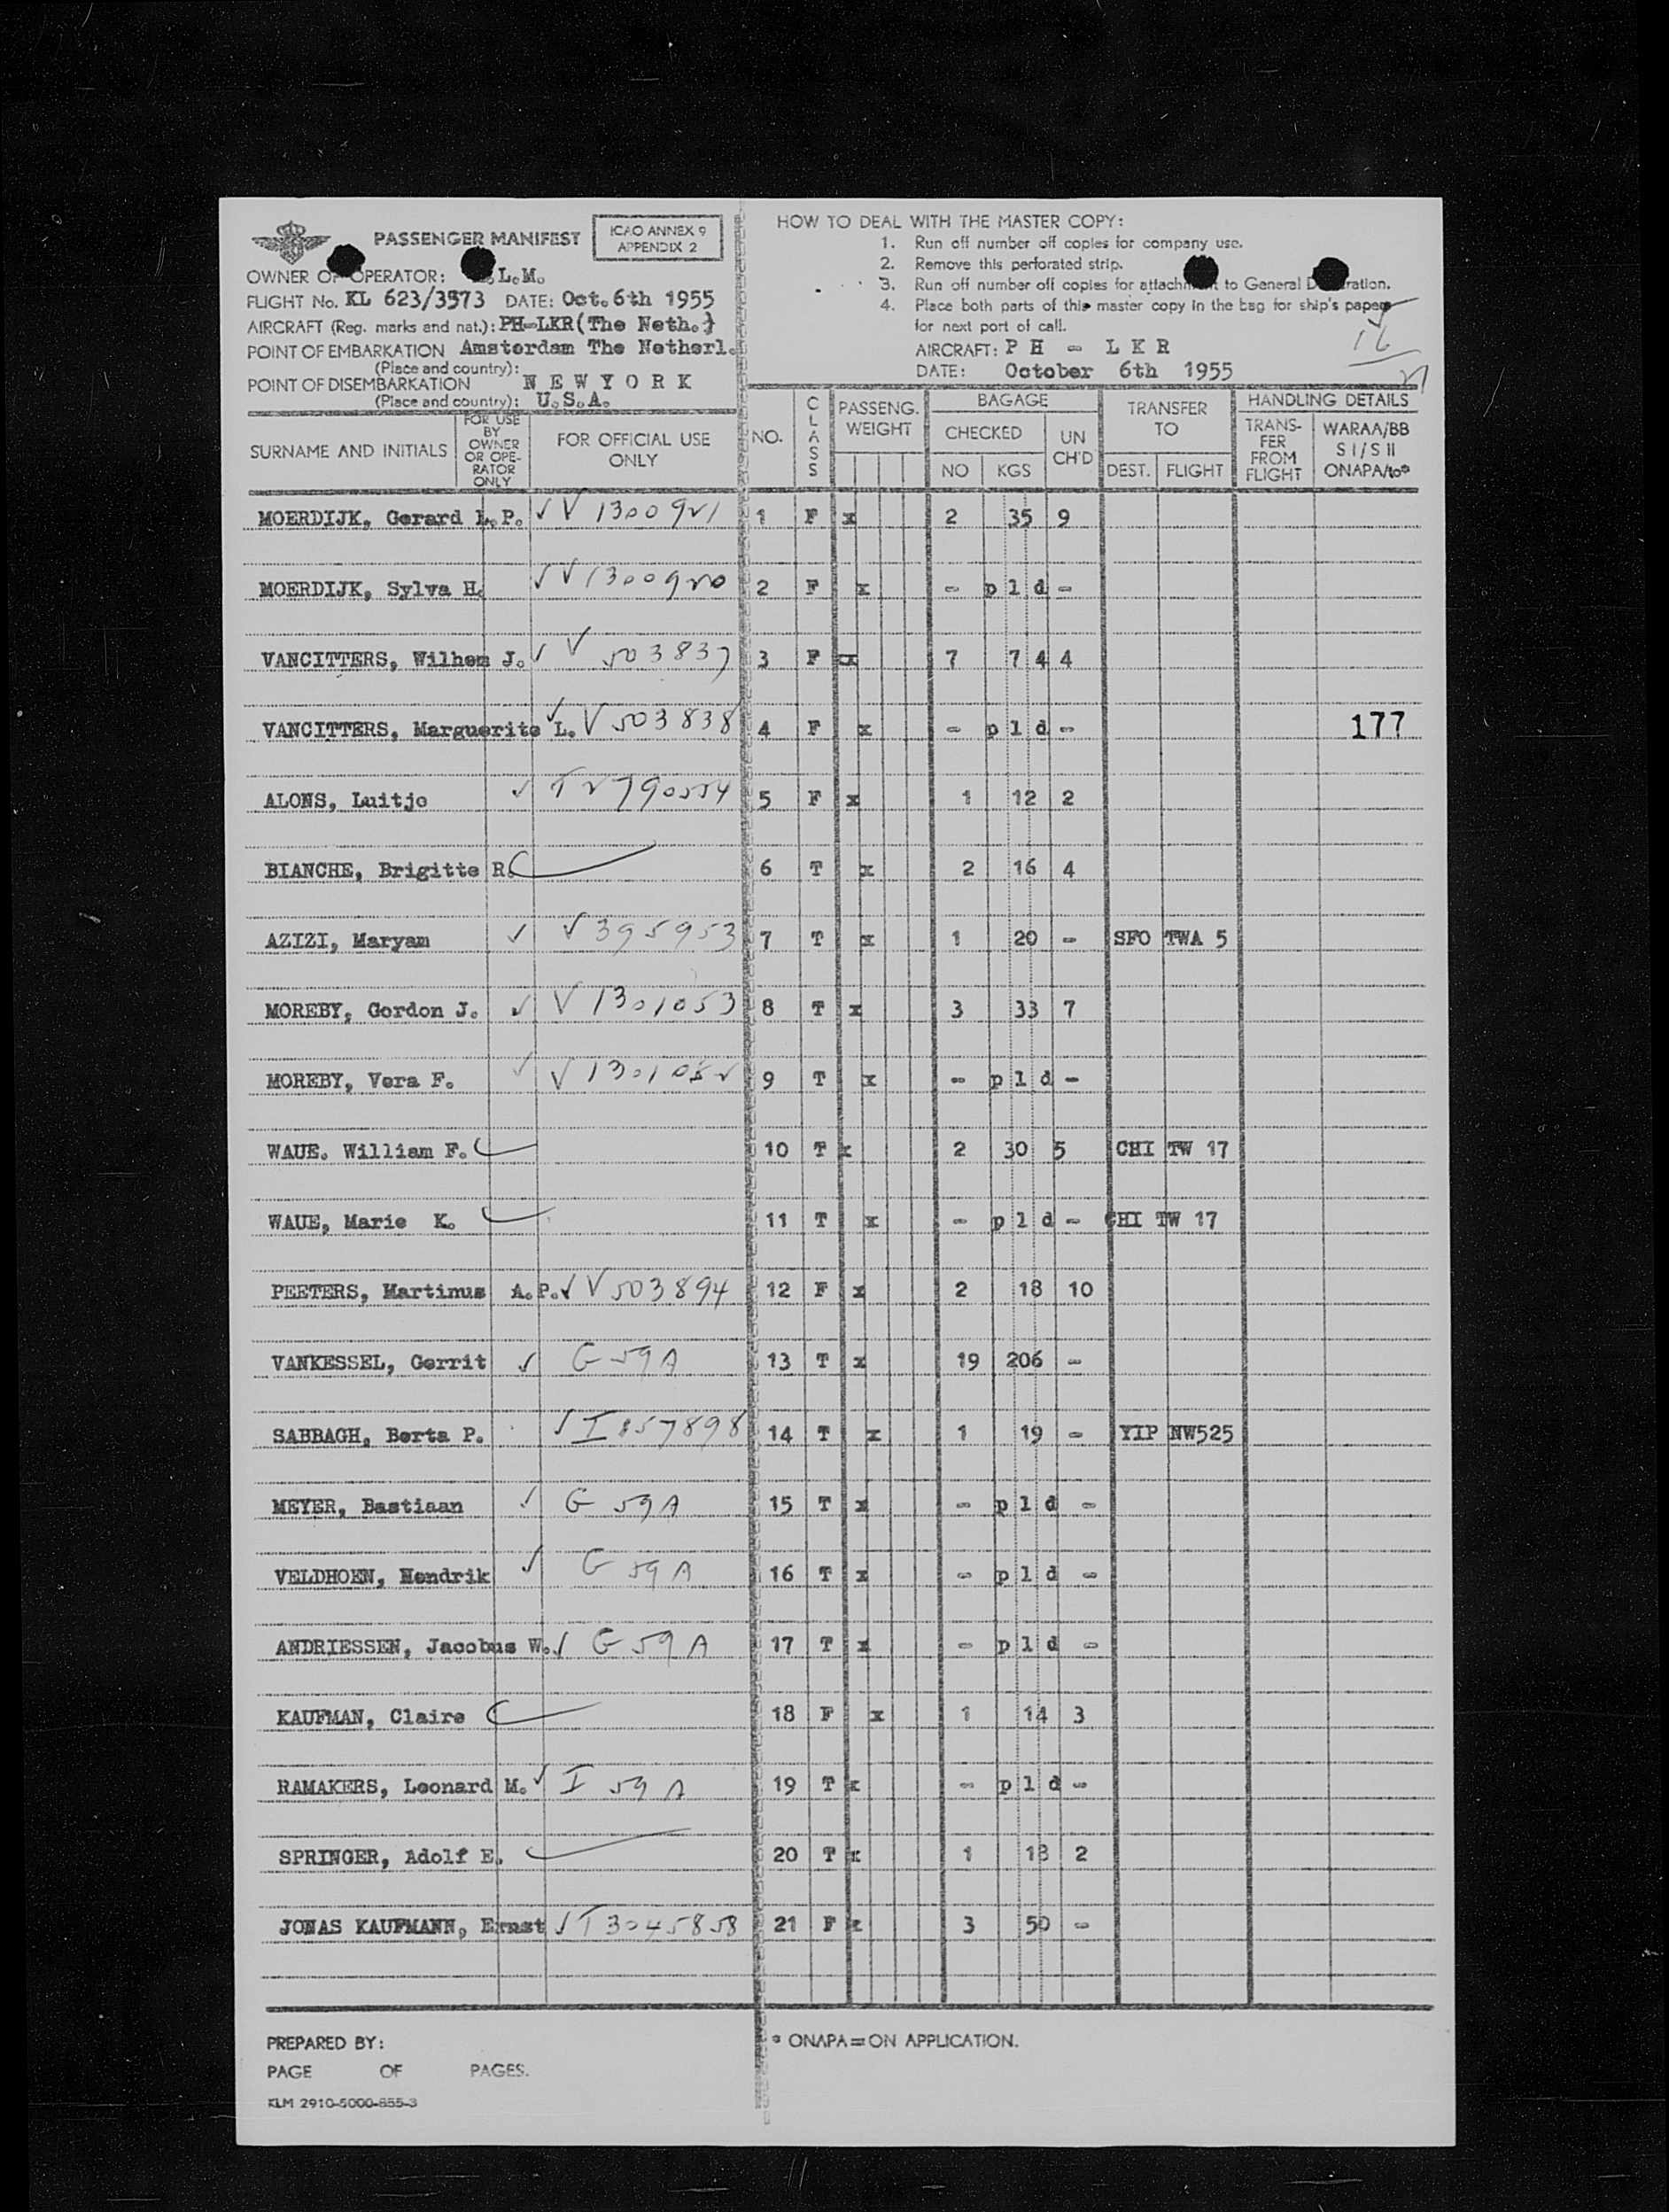 PASSENGER MANIFEST
ICAO ANNEX 9
APPENDIX 2
OWNER OR OPERATOR: L.M.
FLIGHT No. KL 623/3573 DATE: Oct.6th 1955
AIRCRAFT (Reg. marks and nat.): PH-LKR(The Neth.)
POINT OF EMBARKATION Amsterdam The Netherl.
(Place and country):
POINT OF DISEMBARKATION N E W Y O R K
(Place and country): U.S.A.
HOW TO DEAL WITH THE MASTER COPY:
1. Run off number off copies for company use.
2. Remove this perforated strip.
3. Run off number off copies for to General
4. Place both parts of this master copy in the bag for ship's papers
for next port of call.
16
AIRCRAFT: P H - L K R
DATE: October 6th 1955
SURNAME AND INITIALS
FOR USE BY OWNER OR OPE-RATOR ONLY
FOR OFFICIAL USE ONLY
NO.
CLASS
PASSENG. WEIGHT
BAGAGE
CHECKED
NO KGS
UN CH'D
TRANSFER TO
DEST. FLIGHT
HANDLING DETAILS
TRANS-FER FROM FLIGHT
WARAA/BB S I/S II ONAPA/to*
MOERDIJK, Gerard L.P. √ V 1300921 1 F x 2 35 9
MOERDIJK, Sylva H. √ V 1300920 2 F x - p l d -
VANCITTERS, Wilhem J. √ V 503837 3 F x 7 7 4 4
VANCITTERS, Marguerite L. √ V 503838 4 F x - p l d - 177
ALONS, Luitje √ T 2790554 5 F x 1 12 2
BIANCHE, Brigitte R. 6 T x 2 16 4
AZIZI, Maryam √ V 395953 7 T x 1 20 - SFO TWA 5
MOREBY, Gordon J. √ V 1301053 8 T x 3 33 7
MOREBY, Vera F. √ V 1301052 9 T x - p l d -
WAUE. William F. 10 T x 2 30 5 CHI TW 17
WAUE, Marie K. 11 T x - p l d - CHI TW 17
PEETERS, Martinus A.P. √ V 503894 12 F x 2 18 10
VANKESSEL, Gerrit √ G 59A 13 T x 19 206 -
SABBAGH, Berta P. √ I 857898 14 T x 1 19 - YIP NW525
MEYER, Bastiaan √ G 59A 15 T x - p l d -
VELDHOEN, Hendrik √ G 59A 16 T x - p l d -
ANDRIESSEN, Jacobus W. √ G 59A 17 T x - p l d -
KAUFMAN, Claire 18 F x 1 14 3
RAMAKERS, Leonard M. √ I 59A 19 T x - p l d -
SPRINGER, Adolf E. 20 T x 1 18 2
JONAS KAUFMANN, Ernst √ T 3045858 21 F x 3 50 -
PREPARED BY:
PAGE OF PAGES.
KLM 2910-5000-855-3
* ONAPA=ON APPLICATION.